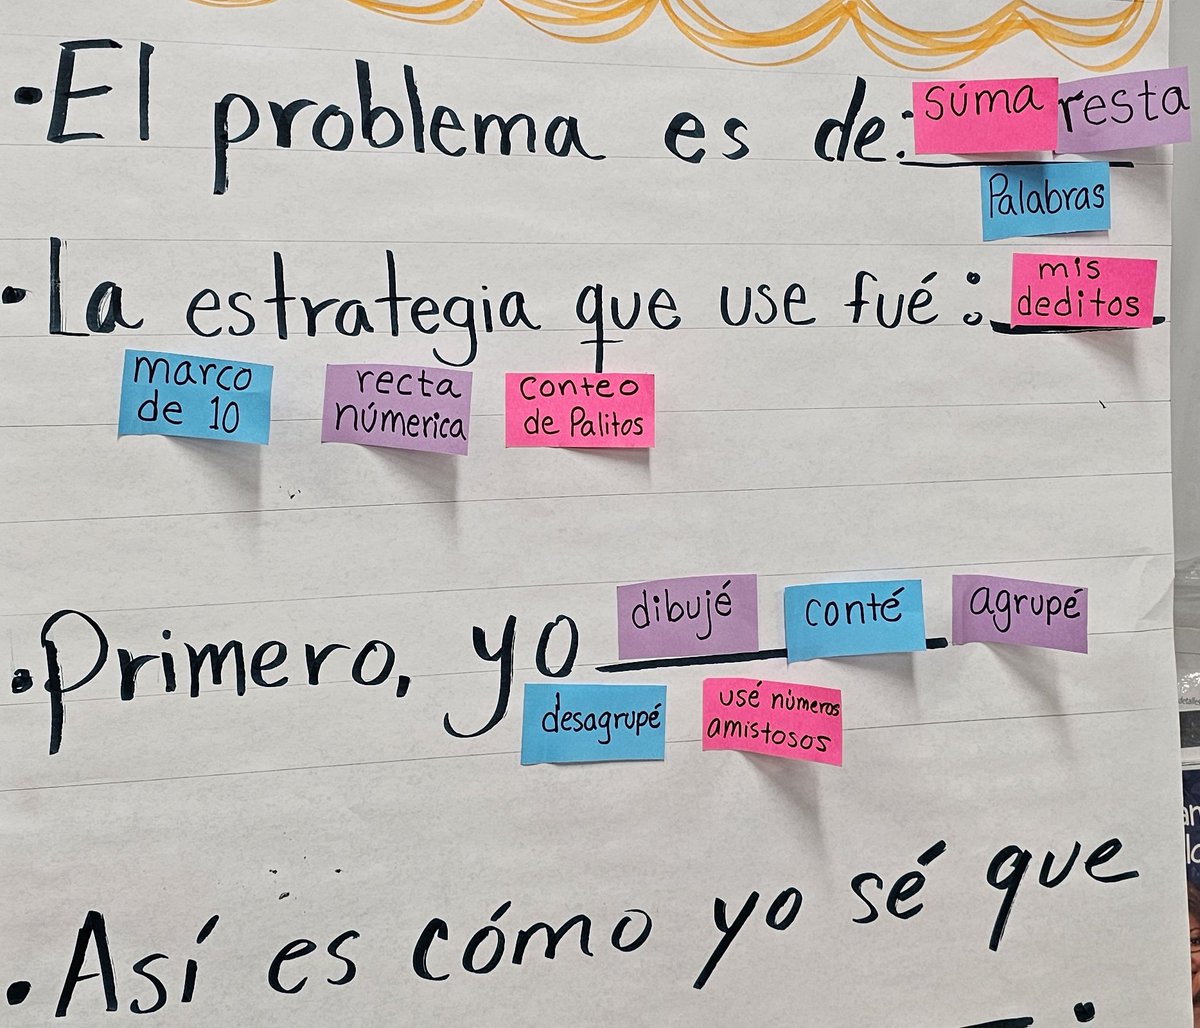 • El problema es de: súma resta
Palabras
• La estrategia que use fué: mis deditos
marco de 10 recta númerica conteo de Palitos
• Primero, yo dibujé conté agrupé
desagrupé usé números amistosos
• Así es cómo yo sé que